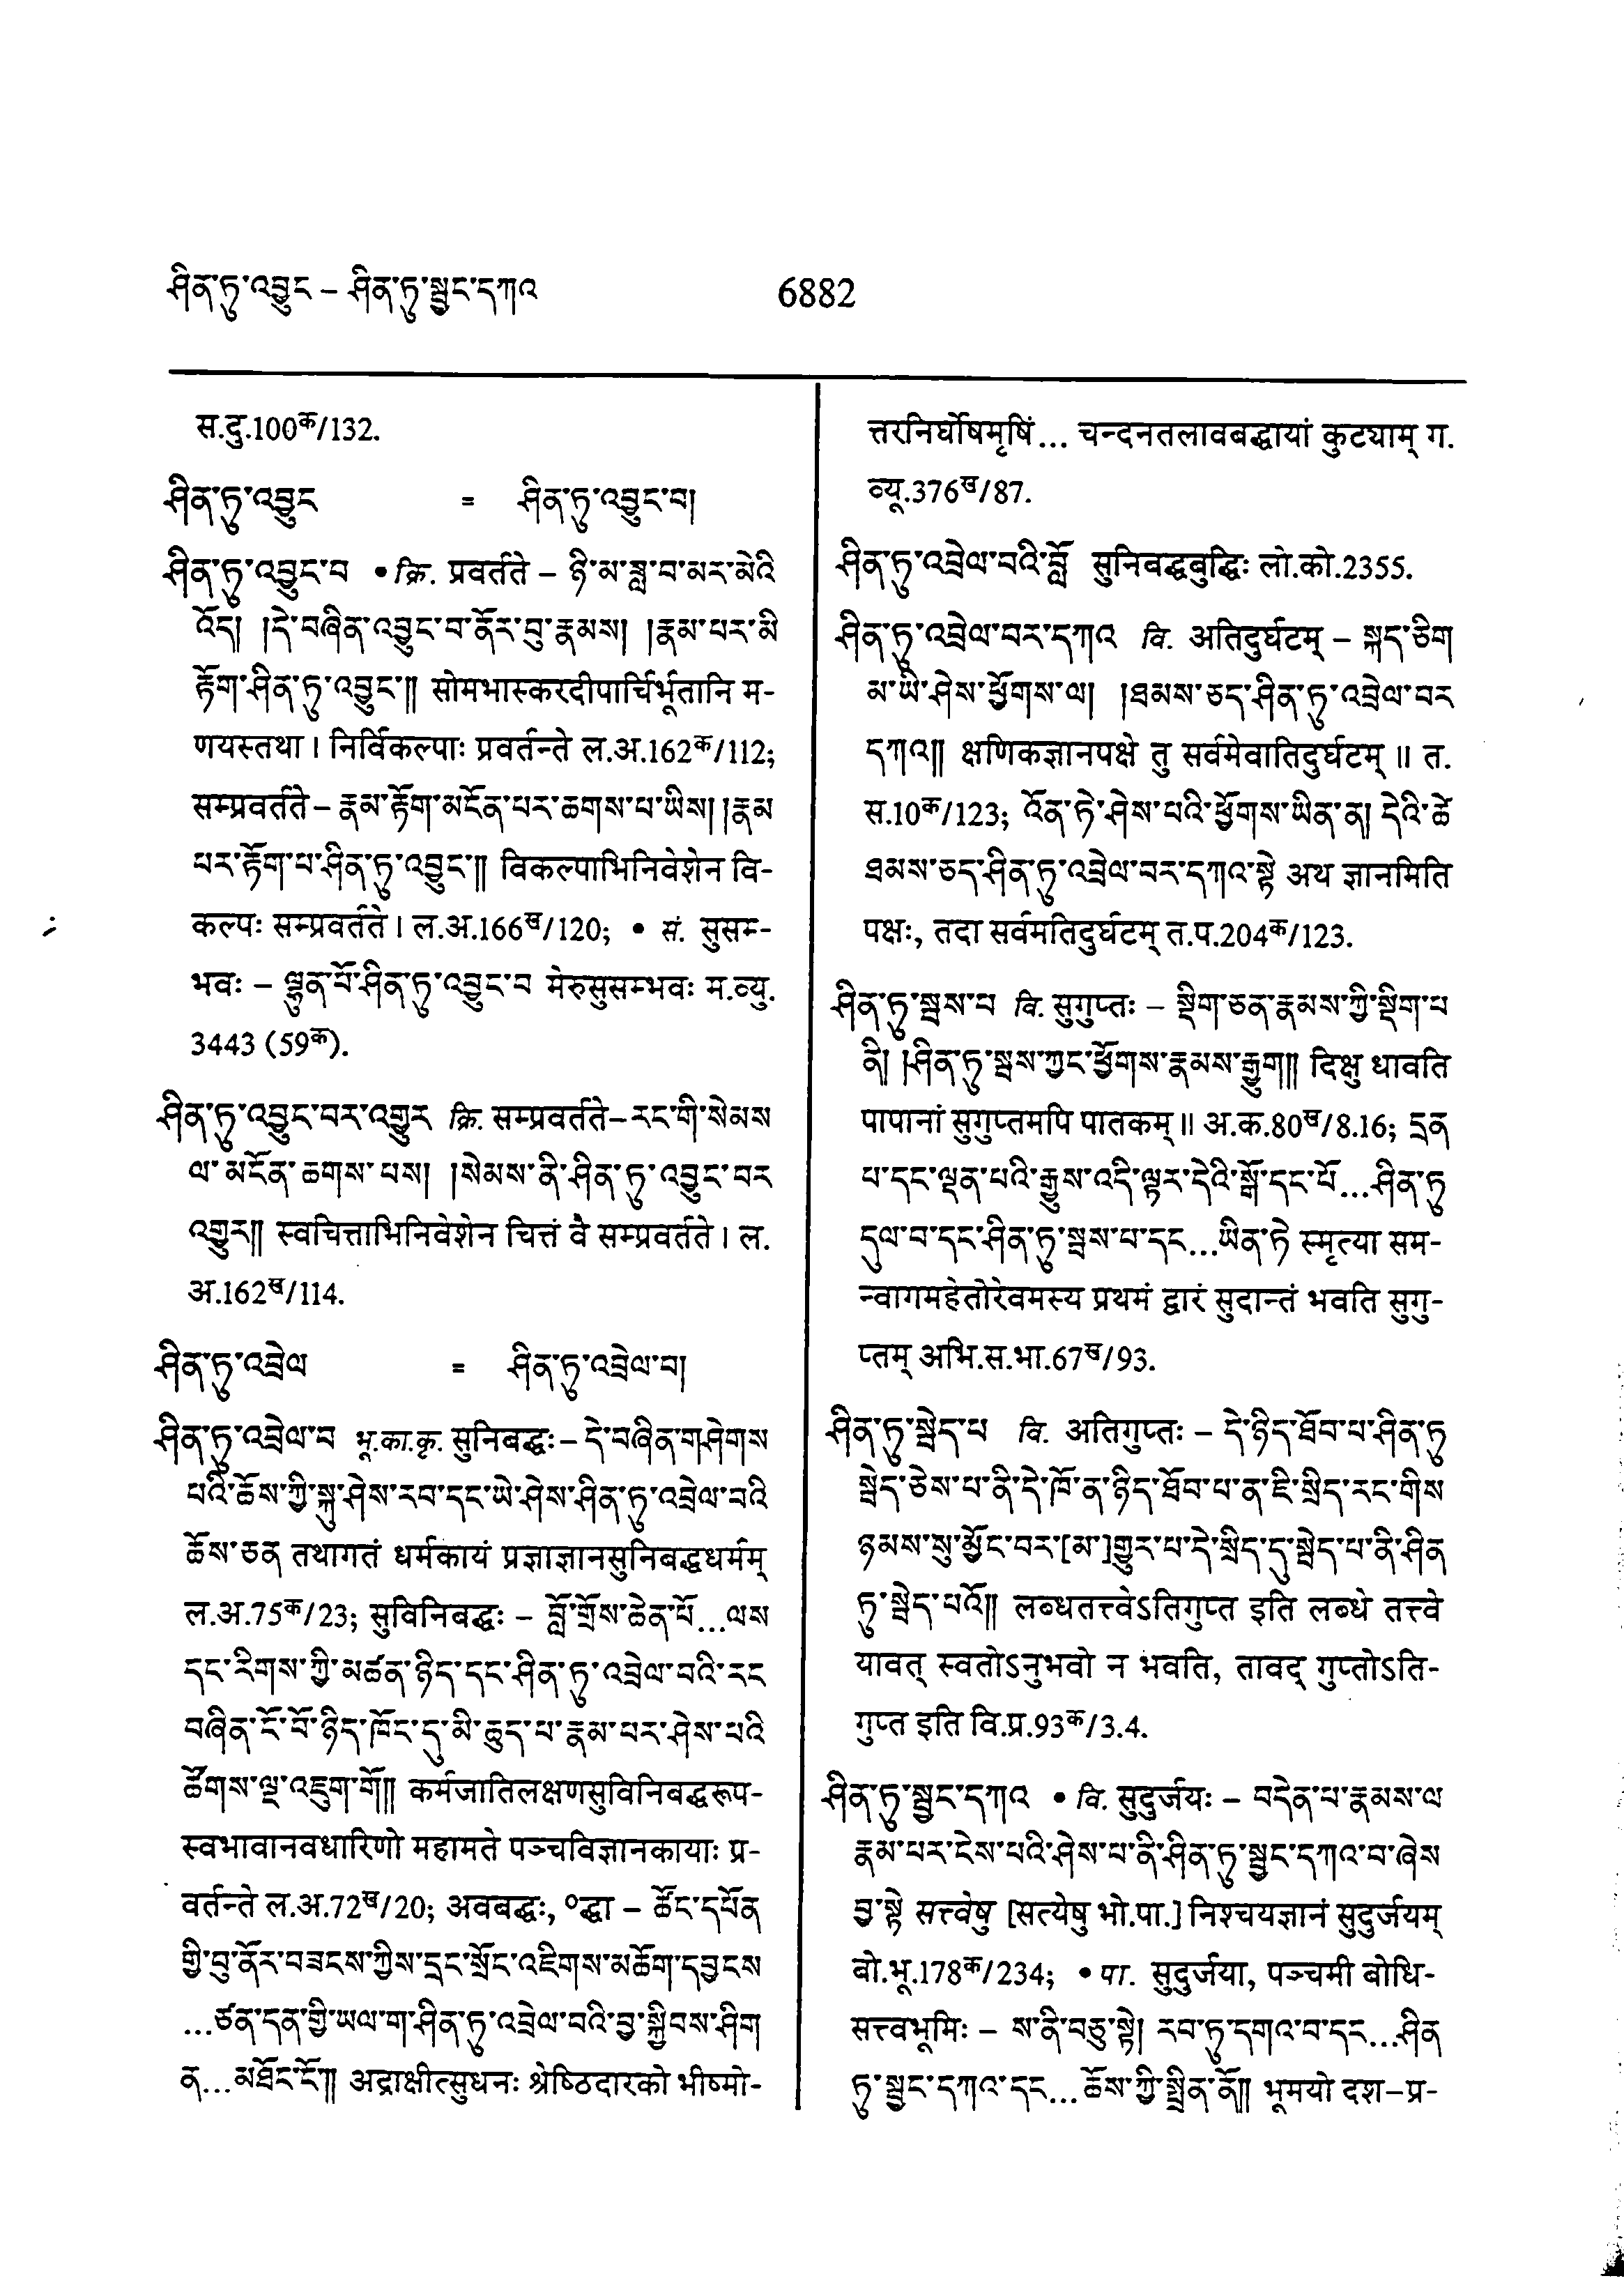 ཤིན་ཏུ་འབྱུང – ཤིན་ཏུ་སྦྱང་དཀའ
6882
स.दु.100क/132.
ཤིན་ཏུ་འབྱུང = ཤིན་ཏུ་འབྱུང་བ།
ཤིན་ཏུ་འབྱུང་བ • क्रि. प्रवर्तते – ཉི་མ་ཟླ་བ་མར་མེའི
འོད། །དེ་བཞིན་འབྱུང་བ་ནོར་བུ་རྣམས། །རྣམ་པར་མི
རྟོག་ཤིན་ཏུ་འབྱུང་།། सोमभास्करदीपार्चिर्भूतानि म-
णयस्तथा । निर्विकल्पाः प्रवर्तन्ते ल.अ.162क/112;
सम्प्रवर्तते – རྣམ་རྟོག་མངོན་པར་ཆགས་པ་ཡིས། །རྣམ
པར་རྟོག་པ་ཤིན་ཏུ་འབྱུང་།། विकल्पाभिनिवेशेन वि-
कल्पः सम्प्रवर्तते । ल.अ.166ख/120; • सं. सुसम्-
भवः – ལྷུན་པོ་ཤིན་ཏུ་འབྱུང་བ मेरुसुसम्भवः म.व्यु.
3443 (59क).
ཤིན་ཏུ་འབྱུང་བར་འགྱུར क्रि. सम्प्रवर्तते–རང་གི་སེམས
ལ་མངོན་ཆགས་པས། །སེམས་ནི་ཤིན་ཏུ་འབྱུང་བར
འགྱུར།། स्वचित्ताभिनिवेशेन चित्तं वै सम्प्रवर्तते । ल.
अ.162ख/114.
ཤིན་ཏུ་འབྲེལ = ཤིན་ཏུ་འབྲེལ་བ།
ཤིན་ཏུ་འབྲེལ་བ भू.का.कृ. सुनिबद्धः – དེ་བཞིན་གཤེགས
པའི་ཆོས་ཀྱི་སྐུ་ཤེས་རབ་དང་ཡེ་ཤེས་ཤིན་ཏུ་འབྲེལ་བའི
ཆོས་ཅན तथागतं धर्मकायं प्रज्ञाज्ञानसुनिबद्धधर्मम्
ल.अ.75क/23; सुविनिबद्धः – བློ་གྲོས་ཆེན་པོ...ལས
དང་རིགས་ཀྱི་མཚན་ཉིད་དང་ཤིན་ཏུ་འབྲེལ་བའི་རང
བཞིན་ངོ་བོ་ཉིད་ཁོང་དུ་མི་ཆུད་པ་རྣམ་པར་ཤེས་པའི
ཚོགས་ལྔ་འཇུག་གོ།། कर्मजातिलक्षणसुविनिबद्धरूप-
स्वभावानवधारिणो महामते पञ्चविज्ञानकायाः प्र-
वर्तन्ते ल.अ.72ख/20; अवबद्धः, ०द्धा – ཚོང་དཔོན
གྱི་བུ་ནོར་བཟངས་ཀྱིས་དྲང་སྲོང་འཇིགས་མཆོག་དབྱངས
...ཙན་དན་གྱི་ཡལ་ག་ཤིན་ཏུ་འབྲེལ་བའི་བྱ་སྐྱིབས་ཤིག
ན...མཐོང་ངོ་།། अद्राक्षीत्सुधनः श्रेष्ठिदारको भीष्मो-
त्तरनिर्घोषमृषिं... चन्दनतलावबद्धायां कुट्याम् ग.
व्यू.376ख/87.
ཤིན་ཏུ་འབྲེལ་བའི་བློ सुनिबद्धबुद्धिः लो.को.2355.
ཤིན་ཏུ་འབྲེལ་བར་དཀའ वि. अतिदुर्घटम् – སྐད་ཅིག
མ་ཡི་ཤེས་ཕྱོགས་ལ། །ཐམས་ཅད་ཤིན་ཏུ་འབྲེལ་བར
དཀའ།། क्षणिकज्ञानपक्षे तु सर्वमेवातिदुर्घटम् ॥ त.
स.10क/123; འོན་ཏེ་ཤེས་པའི་ཕྱོགས་ཡིན་ན། དེའི་ཚེ
ཐམས་ཅད་ཤིན་ཏུ་འབྲེལ་བར་དཀའ་སྟེ अथ ज्ञानमिति
पक्षः, तदा सर्वमतिदुर्घटम् त.प.204क/123.
ཤིན་ཏུ་སྦས་པ वि. सुगुप्तः – སྡིག་ཅན་རྣམས་ཀྱི་སྡིག་པ
ནི། །ཤིན་ཏུ་སྦས་ཀྱང་ཕྱོགས་རྣམས་རྒྱུག།། दिक्षु धावति
पापानां सुगुप्तमपि पातकम् ॥ अ.क.80ख/8.16; དྲན
པ་དང་ལྡན་པའི་རྒྱུས་འདི་ལྟར་དེའི་སྒོ་དང་པོ...ཤིན་ཏུ
དུལ་བ་དང་ཤིན་ཏུ་སྦས་པ་དང...ཡིན་ཏེ स्मृत्या सम-
न्वागमहेतोरेवमस्य प्रथमं द्वारं सुदान्तं भवति सुगु-
प्तम् अभि.स.भा.67ख/93.
ཤིན་ཏུ་སྦེད་པ वि. अतिगुप्तः – དེ་ཉིད་ཐོབ་པ་ཤིན་ཏུ
སྦེད་ཅེས་པ་ནི་དེ་ཁོ་ན་ཉིད་ཐོབ་པ་ན་ཇི་སྲིད་རང་གིས
ཉམས་སུ་མྱོང་བར་[མ་]གྱུར་པ་དེ་སྲིད་དུ་སྦེད་པ་ནི་ཤིན
ཏུ་སྦེད་པའོ།། लब्धतत्त्वेऽतिगुप्त इति लब्धे तत्त्वे
यावत् स्वतोऽनुभवो न भवति, तावद् गुप्तोऽति-
गुप्त इति वि.प्र.93क/3.4.
ཤིན་ཏུ་སྦྱང་དཀའ • वि. सुदुर्जयः – བདེན་པ་རྣམས་ལ
རྣམ་པར་ངེས་པའི་ཤེས་པ་ནི་ཤིན་ཏུ་སྦྱང་དཀའ་བ་ཞེས
བྱ་སྟེ सत्त्वेषु [सत्येषु भो.पा.] निश्चयज्ञानं सुदुर्जयम्
बो.भू.178क/234; • पा. सुदुर्जया, पञ्चमी बोधि-
सत्त्वभूमिः – ས་ནི་བཅུ་སྟེ། རབ་ཏུ་དགའ་བ་དང...ཤིན
ཏུ་སྦྱང་དཀའ་དང...ཆོས་ཀྱི་སྤྲིན་ནོ།། भूमयो दश–प्र-